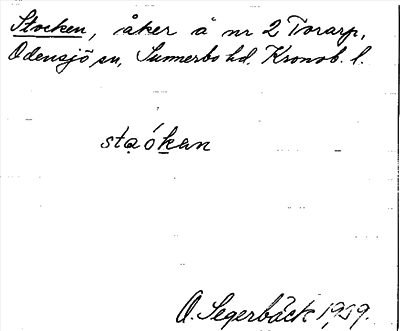 Stocken, åker å nr 2 Torarp,
Odensjö sn, Sunnerbo hd. Kronob. l.
staókan
O. Segerbäck 1939.